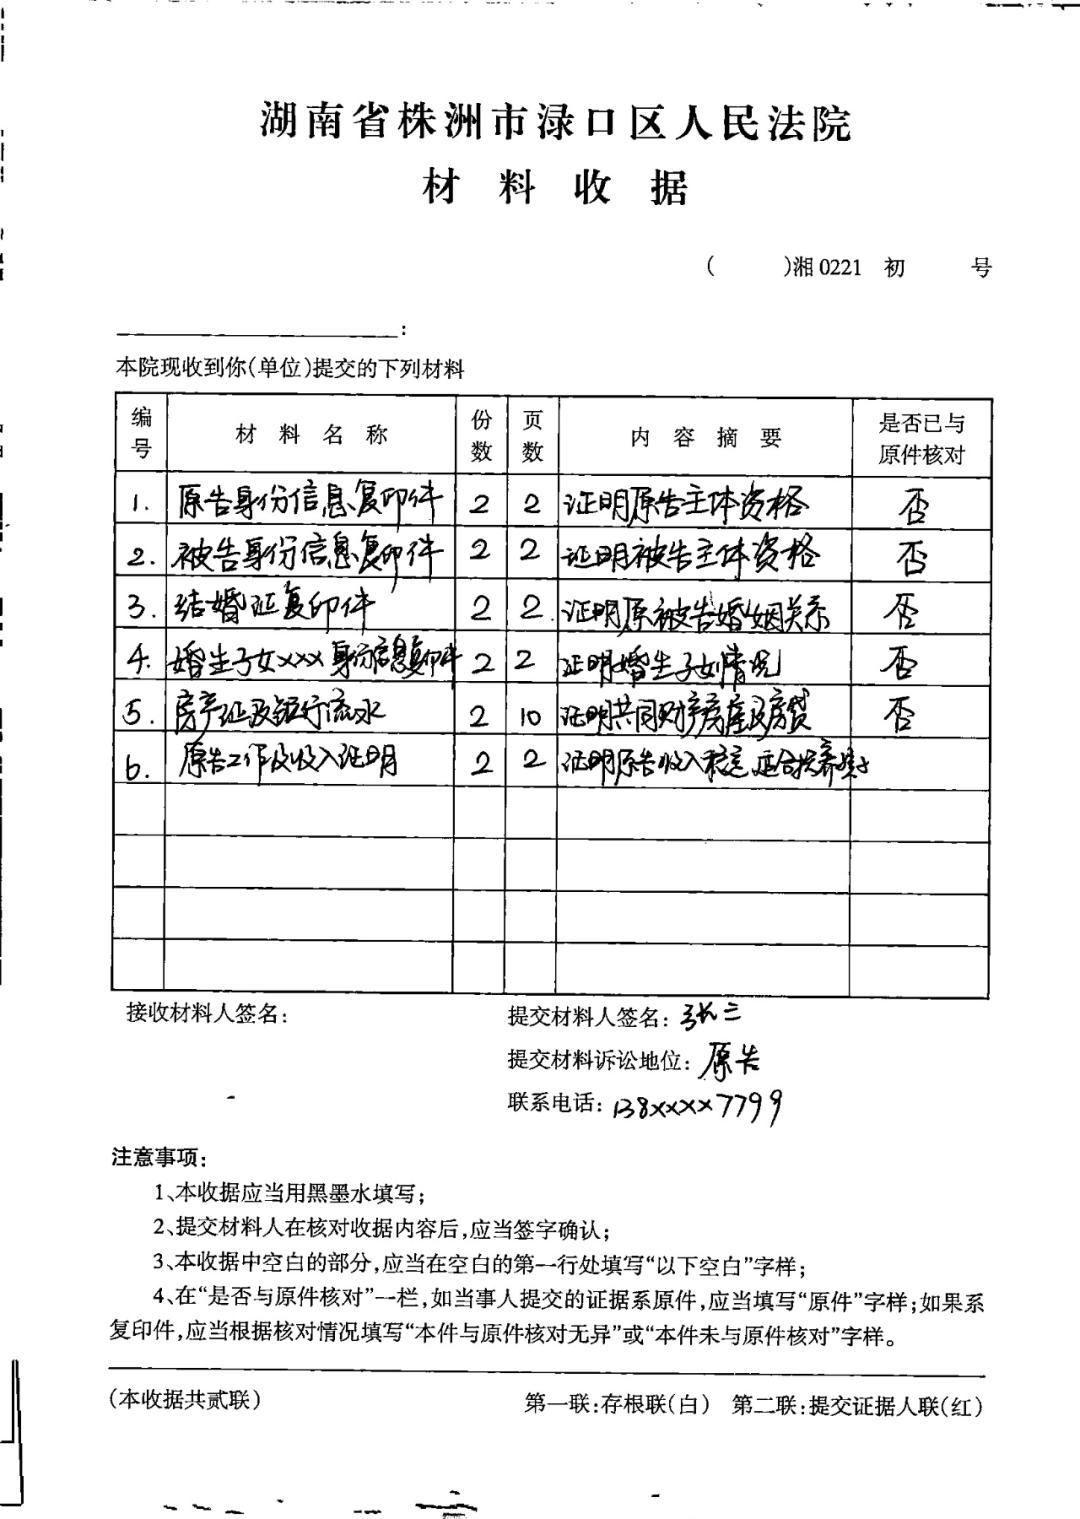 湖南省株洲市渌口区人民法院
材料收据
(　　)湘0221 初　　号
:
本院现收到你(单位)提交的下列材料
编号 材料名称 份数 页数 内容摘要 是否已与原件核对
1. 原告身份信息复印件 2 2 证明原告主体资格 否
2. 被告身份信息复印件 2 2 证明被告主体资格 否
3. 结婚证复印件 2 2 证明原被告婚姻关系 否
4. 婚生子女xxx身份信息复印件 2 2 证明婚生子女情况 否
5. 房产证及银行流水 2 10 证明共同财产房屋及房贷 否
6. 原告工作及收入证明 2 2 证明原告收入稳定,适合抚养
接收材料人签名:
提交材料人签名: 张三
提交材料诉讼地位: 原告
联系电话: 138xxxx7799
注意事项:
1、本收据应当用黑墨水填写;
2、提交材料人在核对收据内容后,应当签字确认;
3、本收据中空白的部分,应当在空白的第一行处填写“以下空白”字样;
4、在“是否与原件核对”一栏,如当事人提交的证据系原件,应当填写“原件”字样;如果系
复印件,应当根据核对情况填写“本件与原件核对无异”或“本件未与原件核对”字样。
(本收据共贰联)
第一联:存根联(白) 第二联:提交证据人联(红)